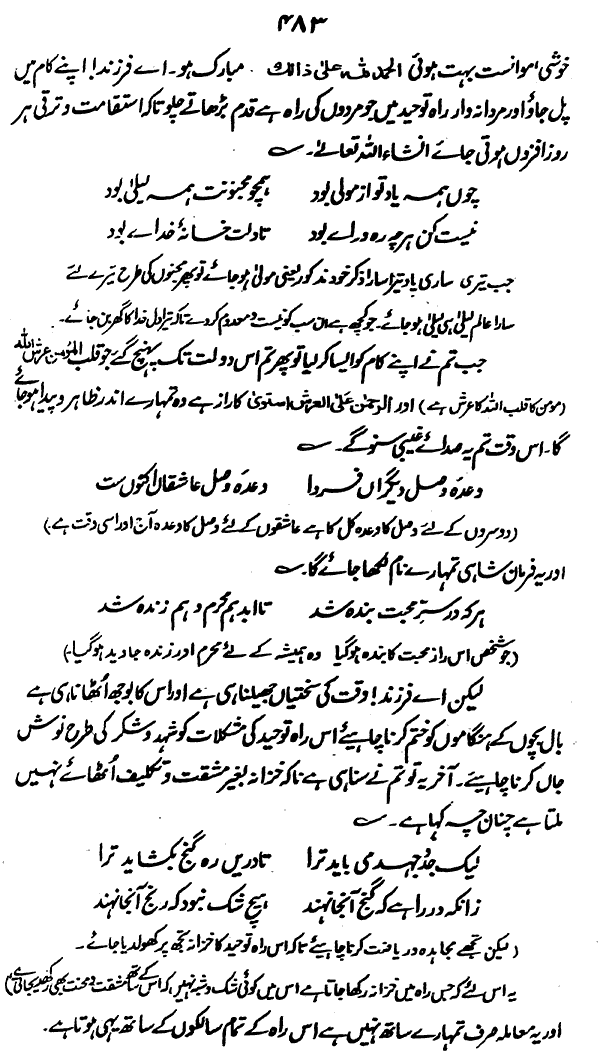 ۴۸۳
خوشی موانست بہت ہوئی الحمد للہ علیٰ ذالک۔ مبارک ہو۔ اے فرزند! اپنے کام میں
پل جاؤ اور مردانہ وار راہ توحید میں جو مردوں کی راہ ہے قدم بڑھاتے چلو تاکہ استقامت و ترقی ہر
روز افزوں ہوتی جائے انشاء اللہ تعالیٰ۔ ؎
چوں ہمہ یاد تو از مولیٰ بود ہمچو مجنونت ہمہ لیلیٰ بود
نیست کن ہرچہ رہ و رائے بود تا دلت خانۂ خدائے بود
جب تیری ساری یاد تیرا سارا ذکر خود مذکور یعنی مولیٰ ہو جائے تو پھر مجنوں کی طرح تیرے لئے
سارا عالم لیلیٰ ہی لیلیٰ ہو جائے۔ جو کچھ ہے ان سب کو نیست و معدوم کر دے تاکہ تیرا دل خدا کا گھر بن جائے۔
جب تم نے اپنے کام کو ایسا کر لیا تو پھر تم اس دولت تک پہنچ گئے جو قلب المؤمن عرش اللہ
(مومن کا قلب اللہ کا عرش ہے) اور الرحمٰن علی العرش استویٰ کا راز ہے وہ تمہارے اندر ظاہر و پیدا ہو جائے
گا۔ اس وقت تم یہ صدائے غیبی سنو گے۔ ؎
وعدہ وصل دیگراں فردا وعدہ وصل عاشقاں اکنوں ست
(دوسروں کے لئے وصل کا وعدہ کل کا ہے عاشقوں کے لئے وصل کا وعدہ آج اور اسی وقت ہے۔)
اور یہ فرمان شاہی تمہارے نام لکھا جائے گا۔ ؎
ہر کہ در سرّ محبت بندہ شد تا ابد ہم محرم و ہم زندہ شد
(جو شخص اس راز محبت کا بندہ ہو گیا وہ ہمیشہ کے لئے محرم اور زندہ جاوید ہو گیا۔)
لیکن اے فرزند! وقت کی سختیاں جھیلنا ہی ہے اور اس کا بوجھ اٹھانا ہی ہے
بال بچوں کے ہنگاموں کو ختم کرنا چاہیئے اس راہ توحید کی مشکلات کو شہد و شکر کی طرح نوش
جاں کرنا چاہیئے۔ آخر یہ تو تم نے سنا ہی ہے نا کہ خزانہ بغیر مشقت و تکلیف اٹھائے نہیں
ملتا ہے چنانچہ کہا ہے۔ ؎
لیک جد جہد می باید ترا تا دریں رہ گنج بکشاید ترا
زانکہ در راہے کہ گنج آنجا نہند ہیچ شک نبود کہ رنج آنجا نہند
(لیکن تجھے مجاہدہ و ریاضت کرنا چاہیئے تاکہ اس راہ توحید کا خزانہ تجھ پر کھول دیا جائے۔
یہ اس لئے کہ جس راہ میں خزانہ رکھا جاتا ہے اس میں کوئی شک و شبہ نہیں کہ اس کے ساتھ مشقت و محنت بھی رکھ دیجاتی ہے)
اور یہ معاملہ صرف تمہارے ساتھ نہیں ہے اس راہ کے تمام سالکوں کے ساتھ یہی ہوتا ہے۔